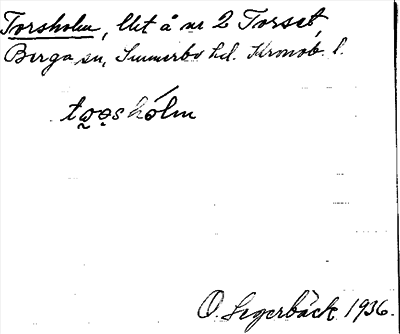 Torsholm, llet å nr 2 Torset,
Berga sn, Sunnerbo hd. Kronob. l.
to̰o̰shólm
O. Segerbäck 1936.